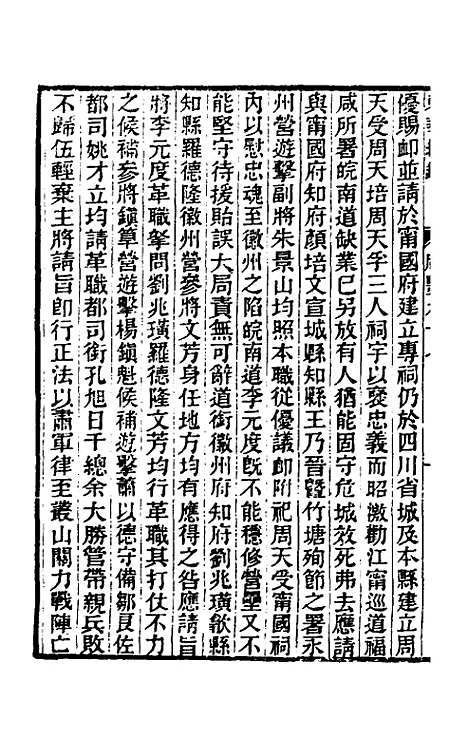 優賜卹並請於甯國府建立專祠仍於四川省城及本縣建立周
天受周天培周天孚三人祠宇以褒忠義而昭激勸江甯巡道福
咸所署皖南道缺業已另放有人猶能固守危城效死弗去應請
與甯國府知府顏培文宣城縣知縣王乃晉暨竹塘殉節之署永
州營遊擊副將朱景山均照本職從優議卹附祀周天受甯國祠
內以慰忠魂至徽州之陷皖南道李元度旣不能穩修營壘又不
能堅守待援貽誤大局責無可辭道銜徽州府知府劉兆璜歙縣
知縣羅德隆徽州營參將文芳身任地方均有應得之咎應請旨
將李元度革職拏問劉兆璜羅德隆文芳均行革職其打仗不力
之候補參將鎭筸營遊擊楊鎭魁候補遊擊蕭以德守備鄒艮佐
都司姚才立均請革職都司銜孔旭日千總余大勝管帶親兵敗
不歸伍輕棄主將請旨卽行正法以肅軍律至叢山關力戰陣亡